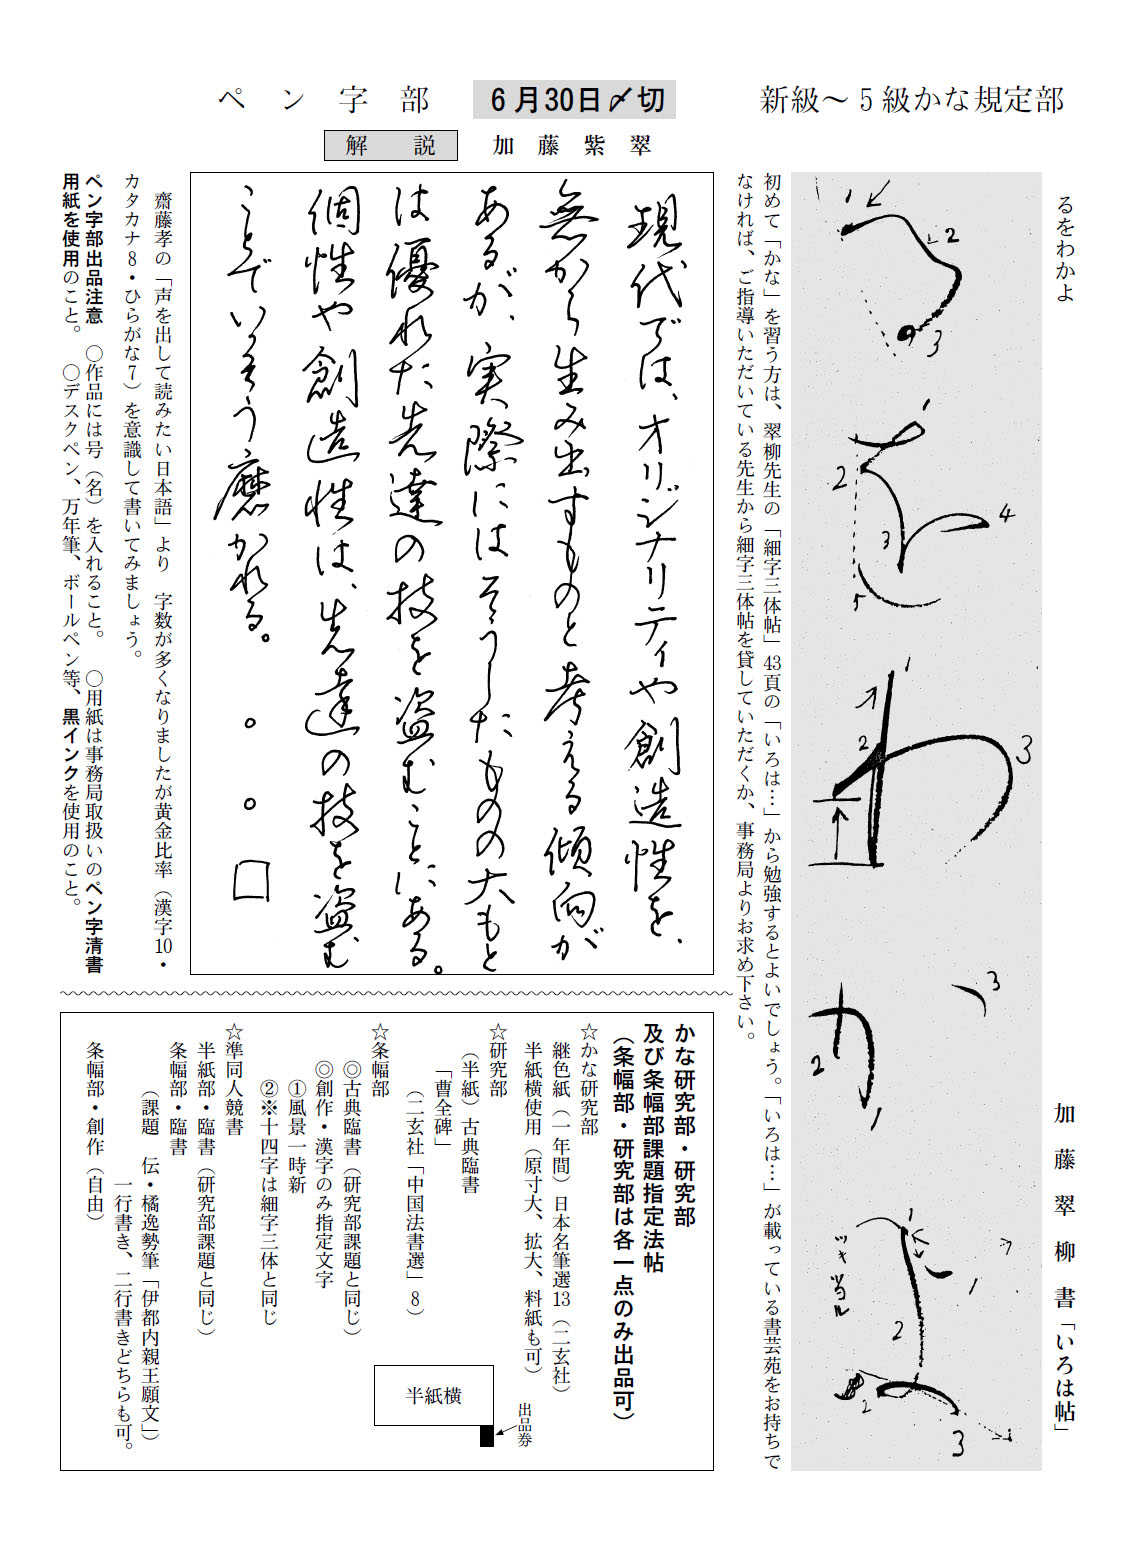 新級～5級かな規定部
6月30日〆切
ペン字部
解説
加藤紫翠
るをわかよ
加藤翠柳書「いろは帖」
1
2
3
1
2
3
4
5
1
2
3
1
2
3
1
1
2
ツキ当ル
2
3
初めて「かな」を習う方は、翠柳先生の「細字三体帖」43頁の「いろは…」から勉強するとよいでしょう。「いろは…」が載っている書芸苑をお持ちで
なければ、ご指導いただいている先生から細字三体帖を貸していただくか、事務局よりお求め下さい。
現代では、オリジナリティや創造性を、
無から生み出すものと考える傾向が
あるが、実際にはそうしたものの大もと
は優れた先達の技を盗むことにある。
個性や創造性は、先達の技を盗む
ことでいっそう磨かれる。
齋藤孝の「声を出して読みたい日本語」より　字数が多くなりましたが黄金比率（漢字10・
カタカナ8・ひらがな7）を意識して書いてみましょう。
ペン字部出品注意　○作品には号（名）を入れること。　○用紙は事務局取扱いのペン字清書
用紙を使用のこと。　○デスクペン、万年筆、ボールペン等、黒インクを使用のこと。
かな研究部・研究部
及び条幅部課題指定法帖
（条幅部・研究部は各一点のみ出品可）
☆かな研究部
継色紙（一年間）日本名筆選13（二玄社）
半紙横使用（原寸大、拡大、料紙も可）
☆研究部
（半紙）古典臨書
「曹全碑」
（二玄社「中国法書選」8）
☆条幅部
◎古典臨書（研究部課題と同じ）
◎創作・漢字のみ指定文字
①風景一時新
②※十四字は細字三体と同じ
☆準同人競書
半紙部・臨書（研究部課題と同じ）
条幅部・臨書
（課題　伝・橘逸勢筆「伊都内親王願文」）
一行書き、二行書きどちらも可。
条幅部・創作（自由）
半紙横
出品券